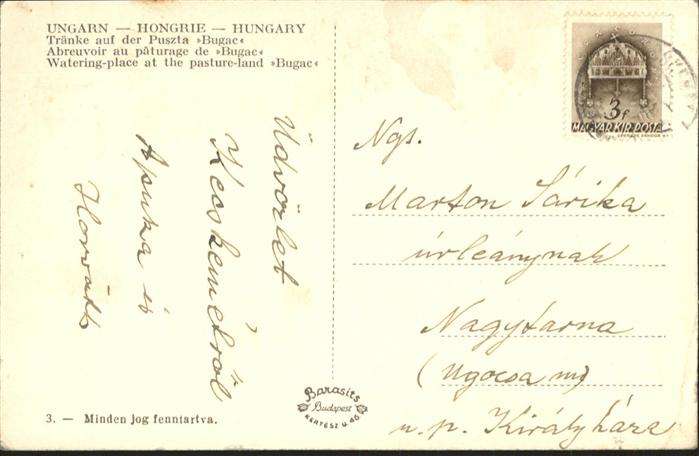 UNGARN — HONGRIE — HUNGARY
Tränke auf der Puszta »Bugac«
Abreuvoir au pâturage de »Bugac«
Watering-place at the pasture-land »Bugac«
Üdvözlet
Kecskemétről
Apuka és
Horváth
3. — Minden jog fenntartva.
Barasits
Budapest
KERTÉSZ U. 46
3f
MAGYAR KIR. POSTA
Ngs.
Marton Sárika
úrleánynak
Nagytarna
(Ugocsa m)
u. p. Királyháza